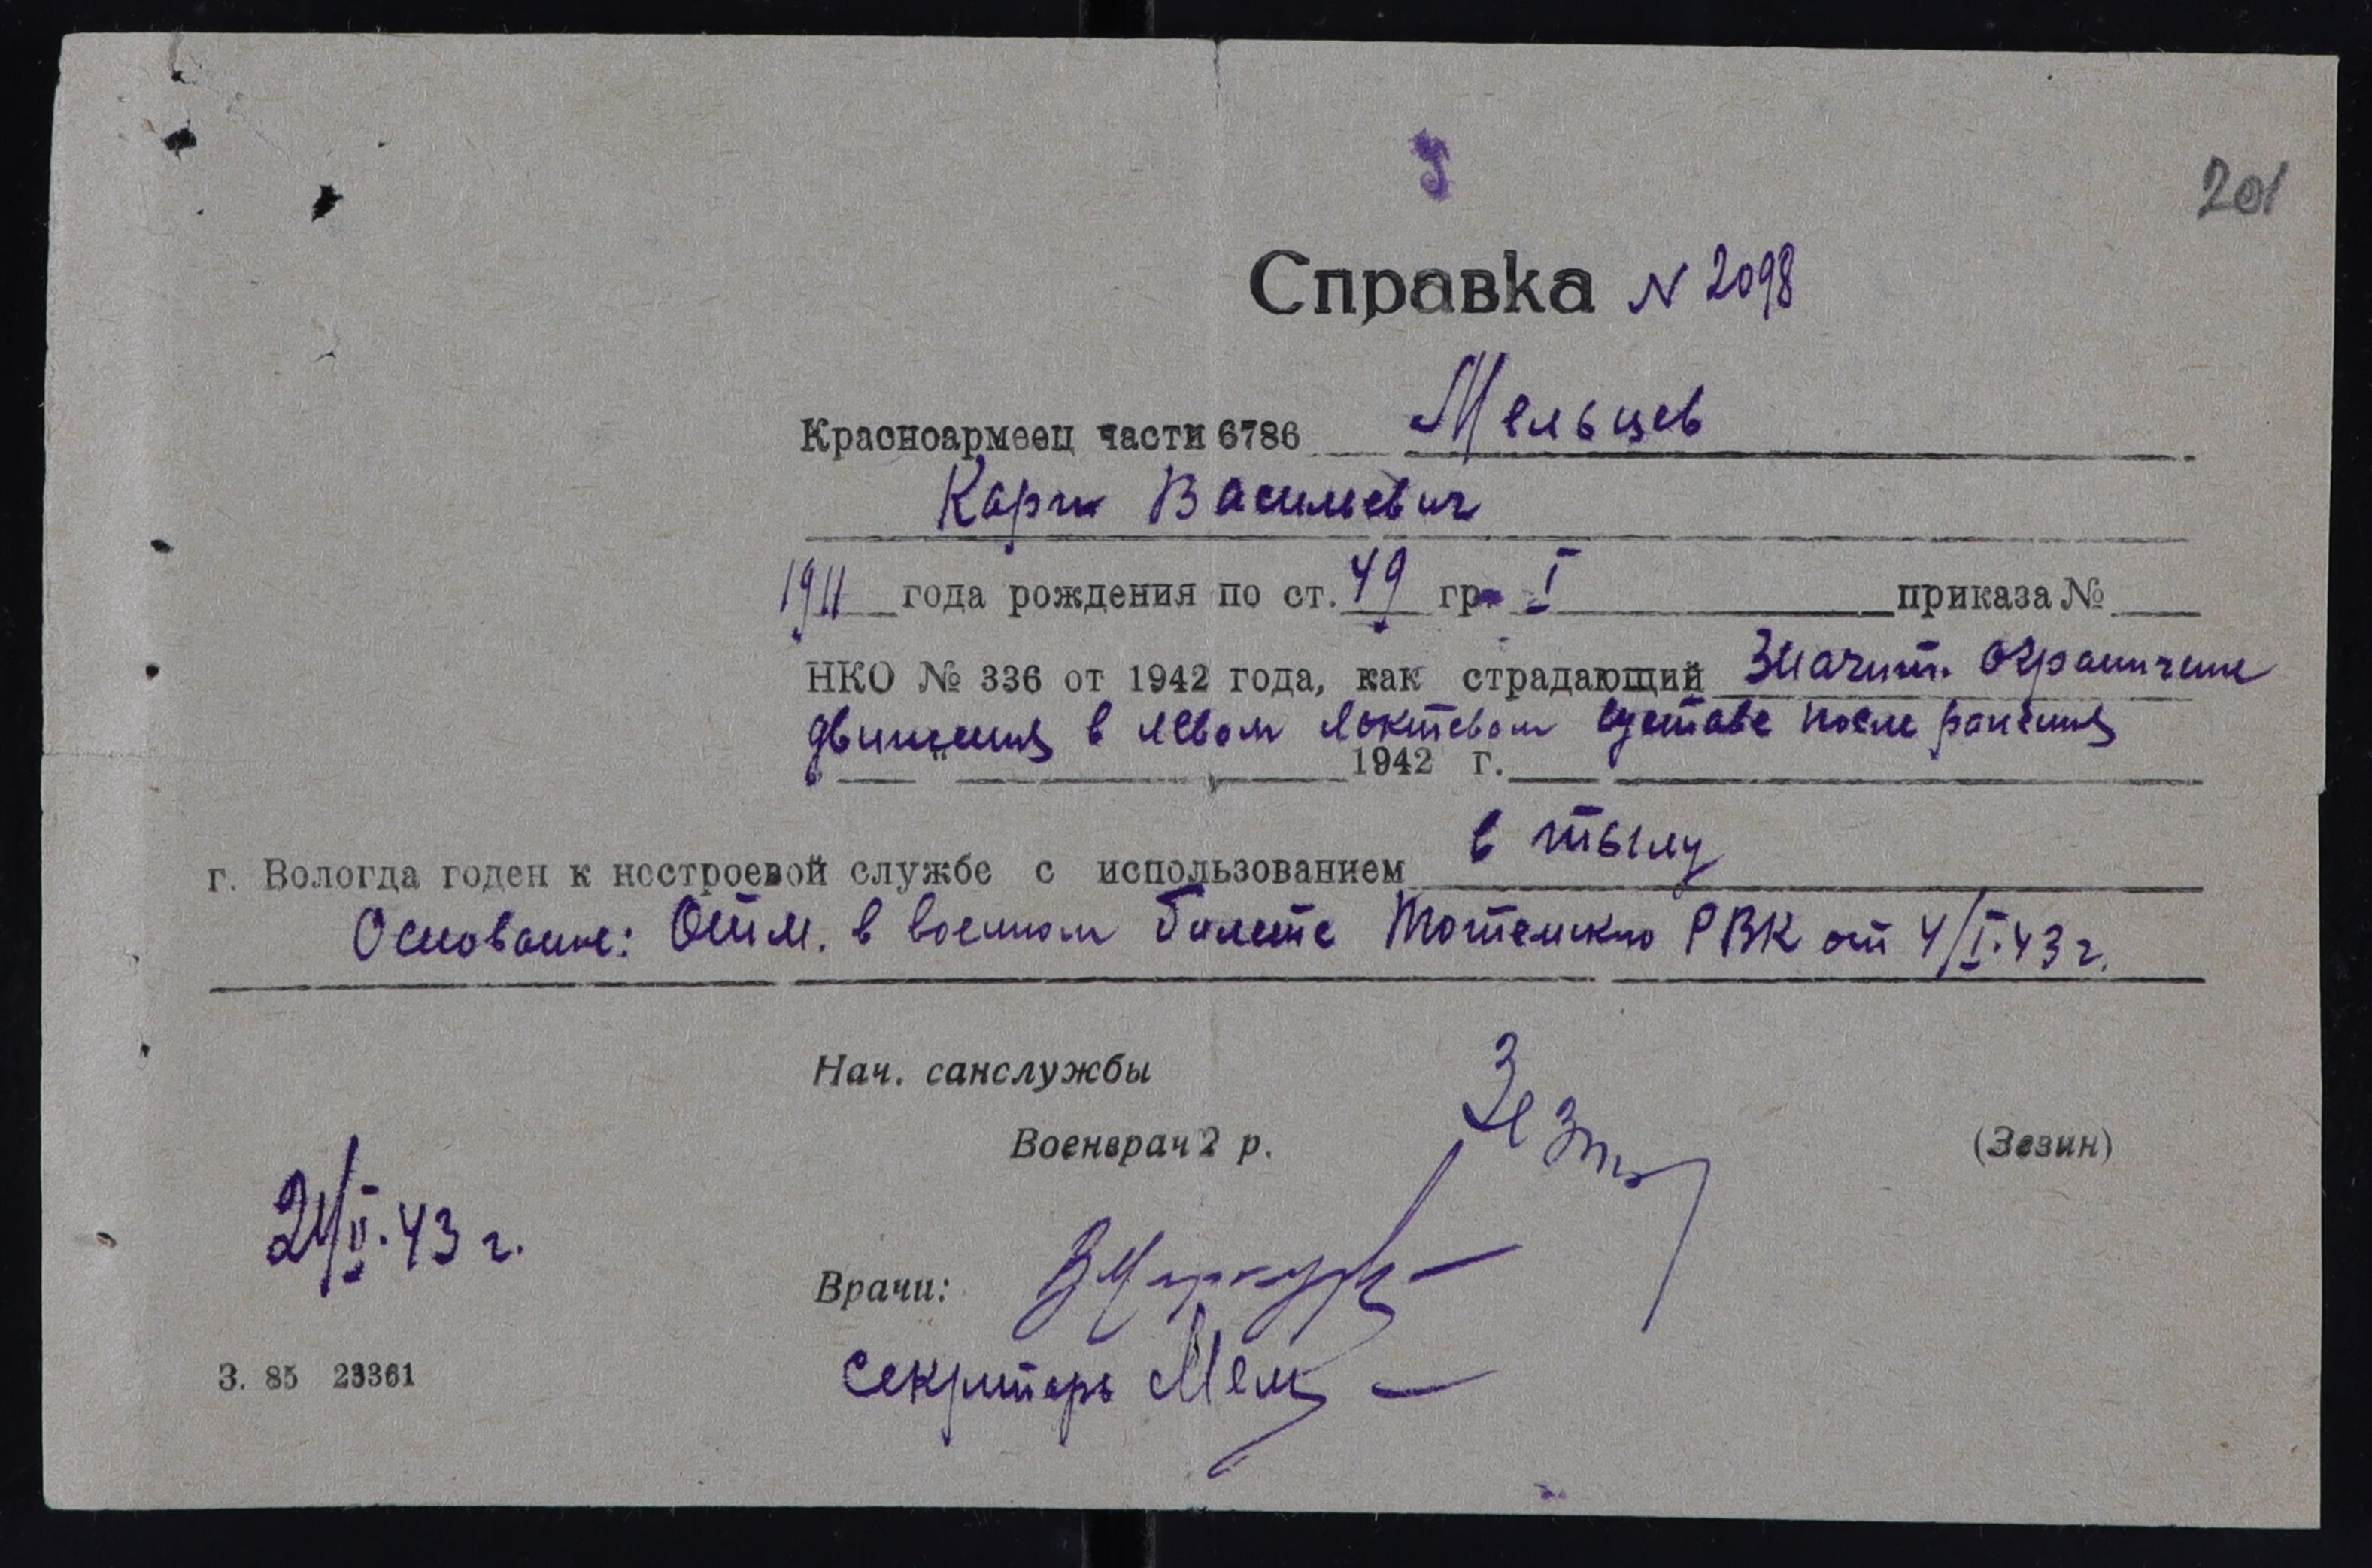 201
Справка N 2098
Красноармеец части 6786 Мельцев
Карп Васильевич
1911 года рождения по ст. 49 гр. I приказа №
НКО № 336 от 1942 года, как страдающий Значит. ограничение
движения в левом локтевом суставе после ранения
" 1942 г.
г. Вологда годен к нестроевой службе с использованием в тылу
Основание: Отм. в военном билете Тотемского РВК от 4/I.43 г.
Нач. санслужбы
Военврач 2 р. (Зезин)
24/II.43 г.
Врачи:
Секретарь
З. 85 23361